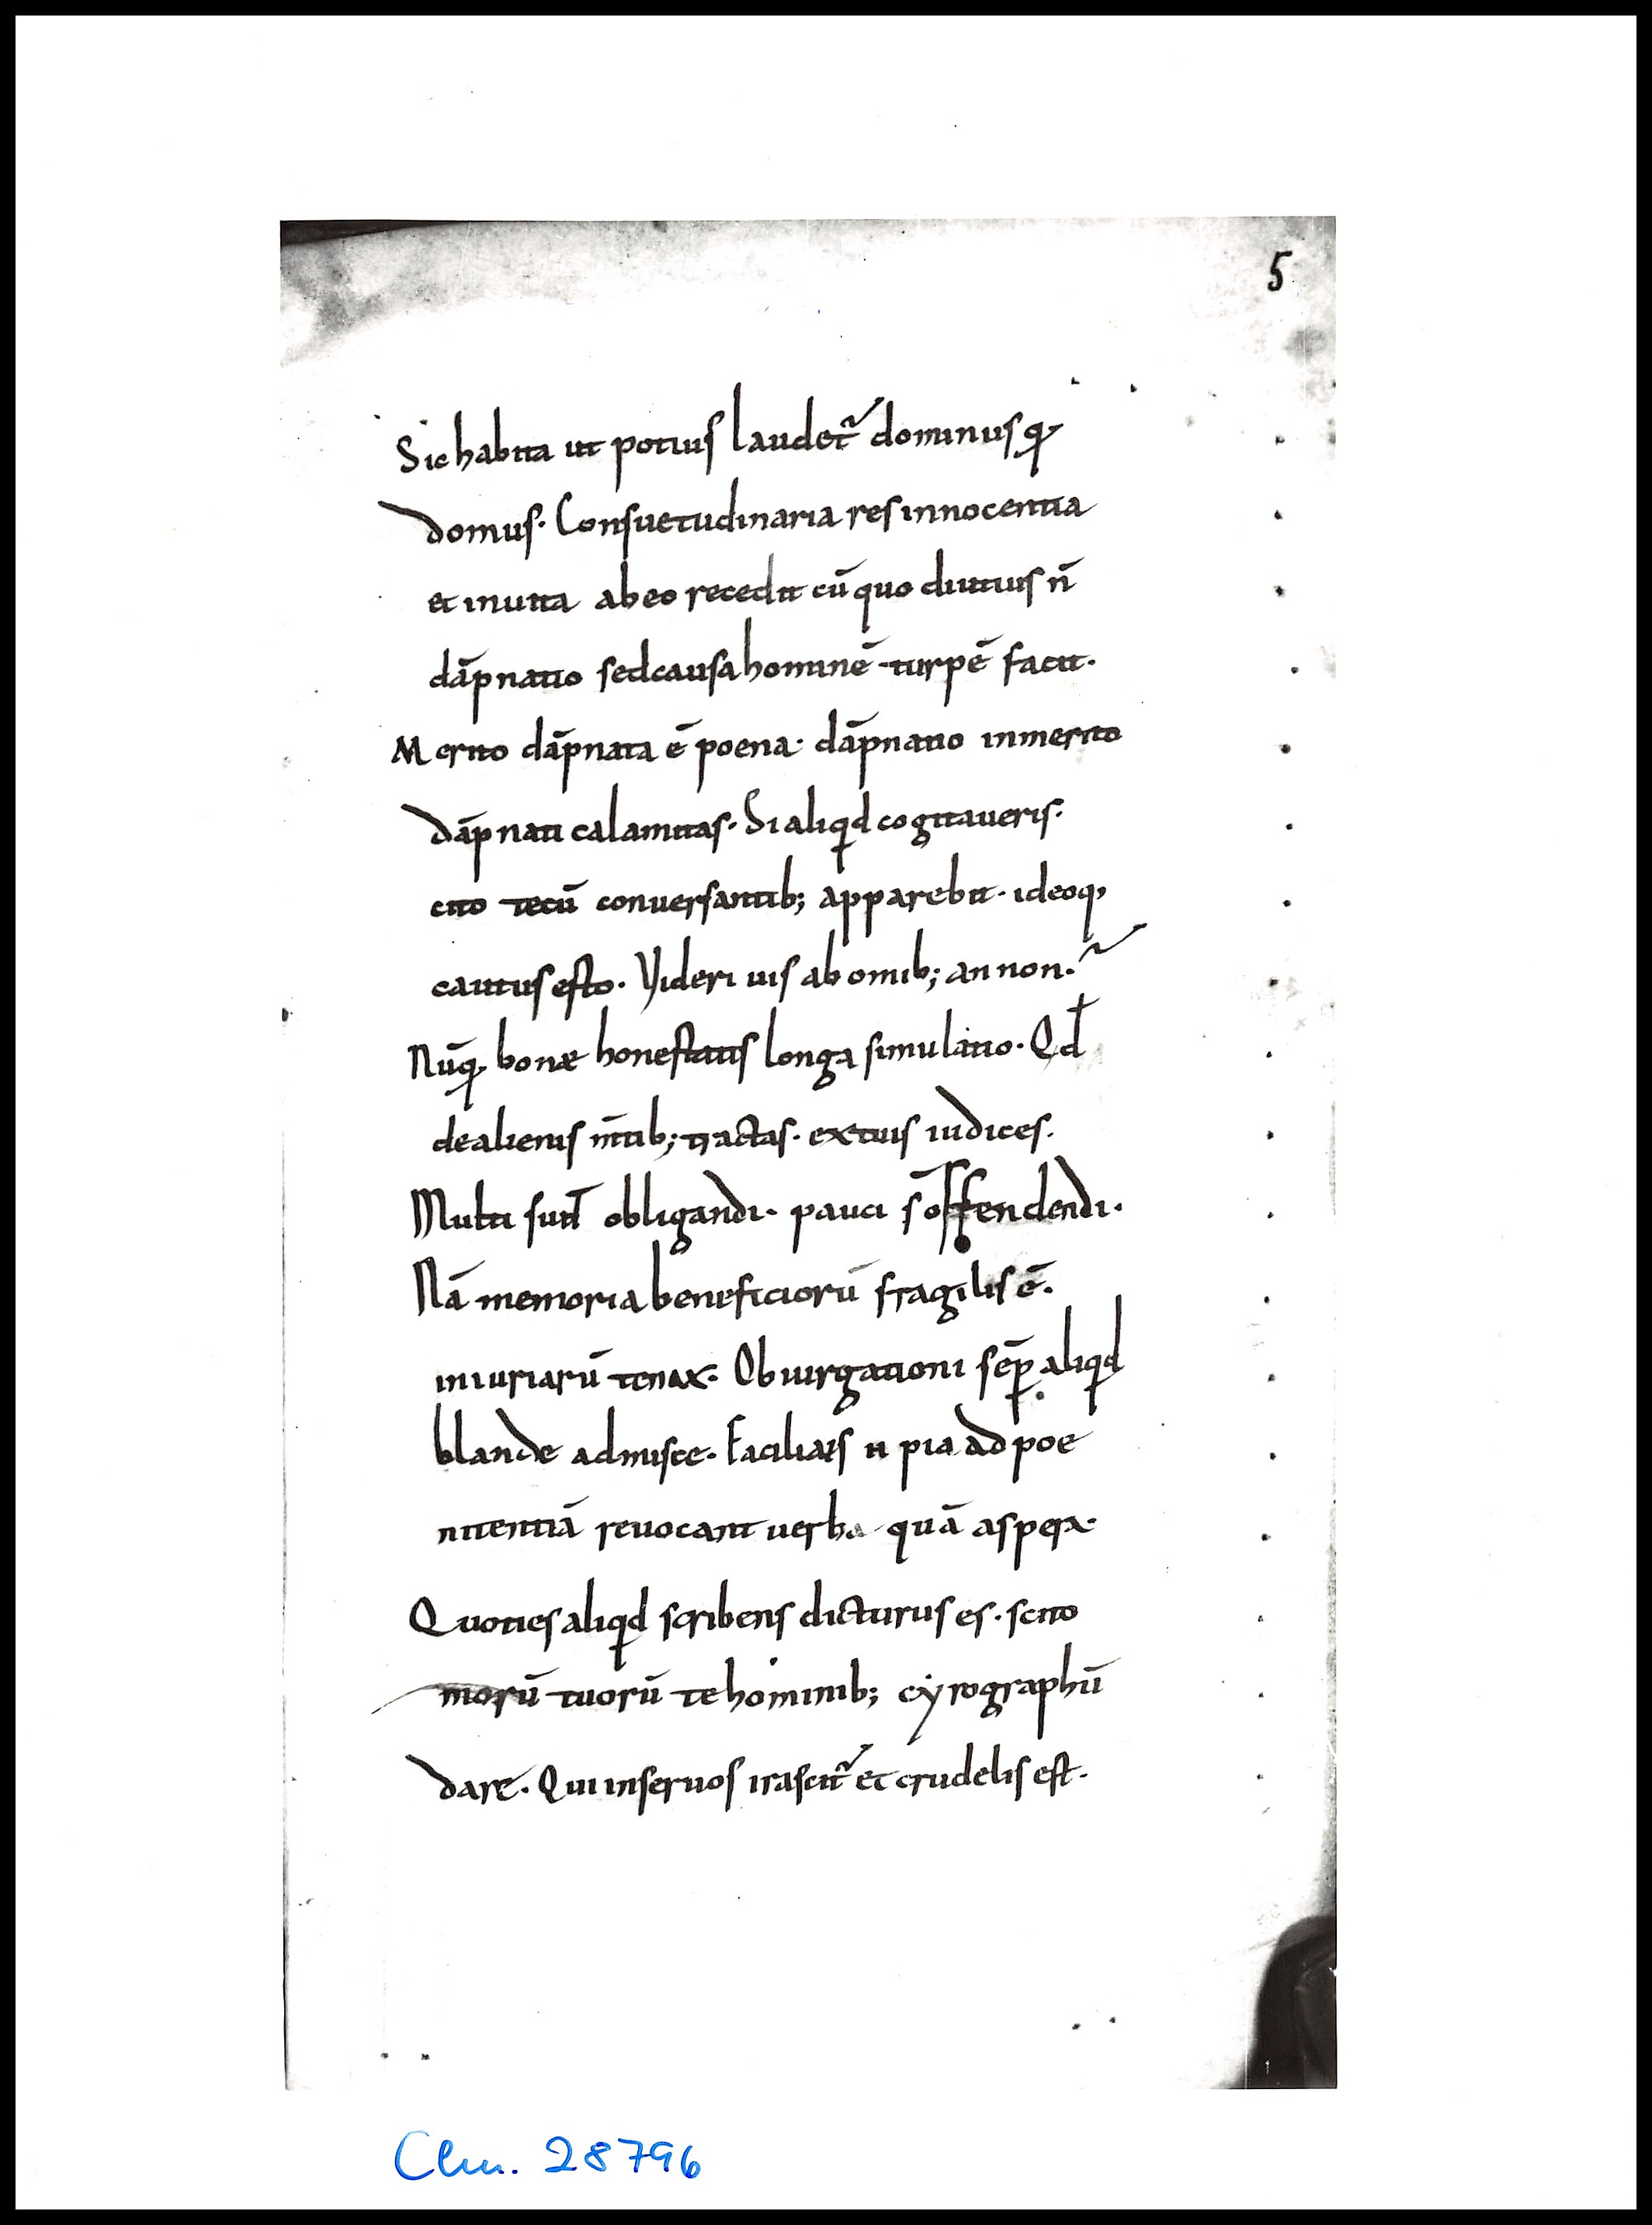 5
Sic habita ut potius laudet᷑ dominus qꝫ
domus. Consuetudinaria res innocentia
et inuita ab eo recedit cū quo diutius n̄
dāpnatio sed causa hominē turpē facit.
Merito dāpnata ē poena. dāpnatio inmerito
dāpnati calamitas. Si aliqd cogitaueris.
cito tecū conuersantib; apparebit. ideoq,
cautus esto. Videri uis ab omib; an non.
Nūq bonæ honestatis longa simulatio. Qđ
de alienis m̄tib; tractas. ex tuis iudices.
Multi sun̄t obligandi. pauci s̄ offendendi.
Nā memoria beneficiorū fragilis ē.
iniuriarū tenax. Obiurgationi sēp aliqd
blande admisce. Facilius n pia ad poe
nitentiā reuocant uerba quā aspera.
Quoties aliqd scribens dicturus es. scito
morū tuorū te hominib; cyrographū
dare. Qui in seruos irascit᷑ et crudelis est.
Clm. 28796